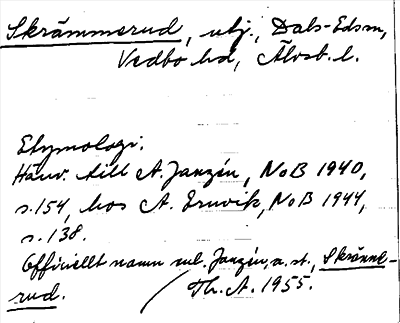 Skrämmerud, utj., Dals-Edsm,
Vedbo hd, Älvsb. l.
Etymologi.
Hänv. till A. Janzén, NoB 1940,
s. 154, hos A. Ernvik, NoB 1944,
s. 138.
Officiellt namn enl. Janzén, a. st., Skränne-
rud.
Th. A. 1955.